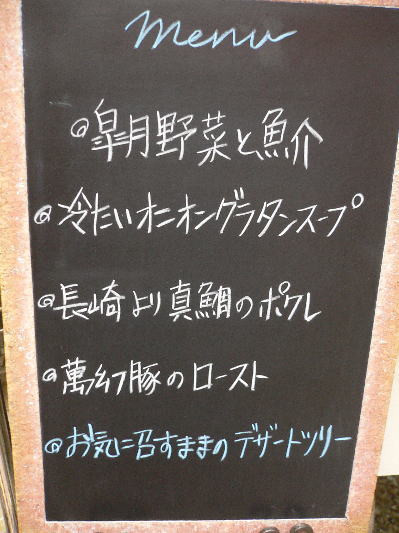 menu
@皐月野菜と魚介
@冷たいオニオングラタンスープ
@長崎より真鯛のポワレ
@萬幻豚のロースト
@お気に召すままのデザートツリー